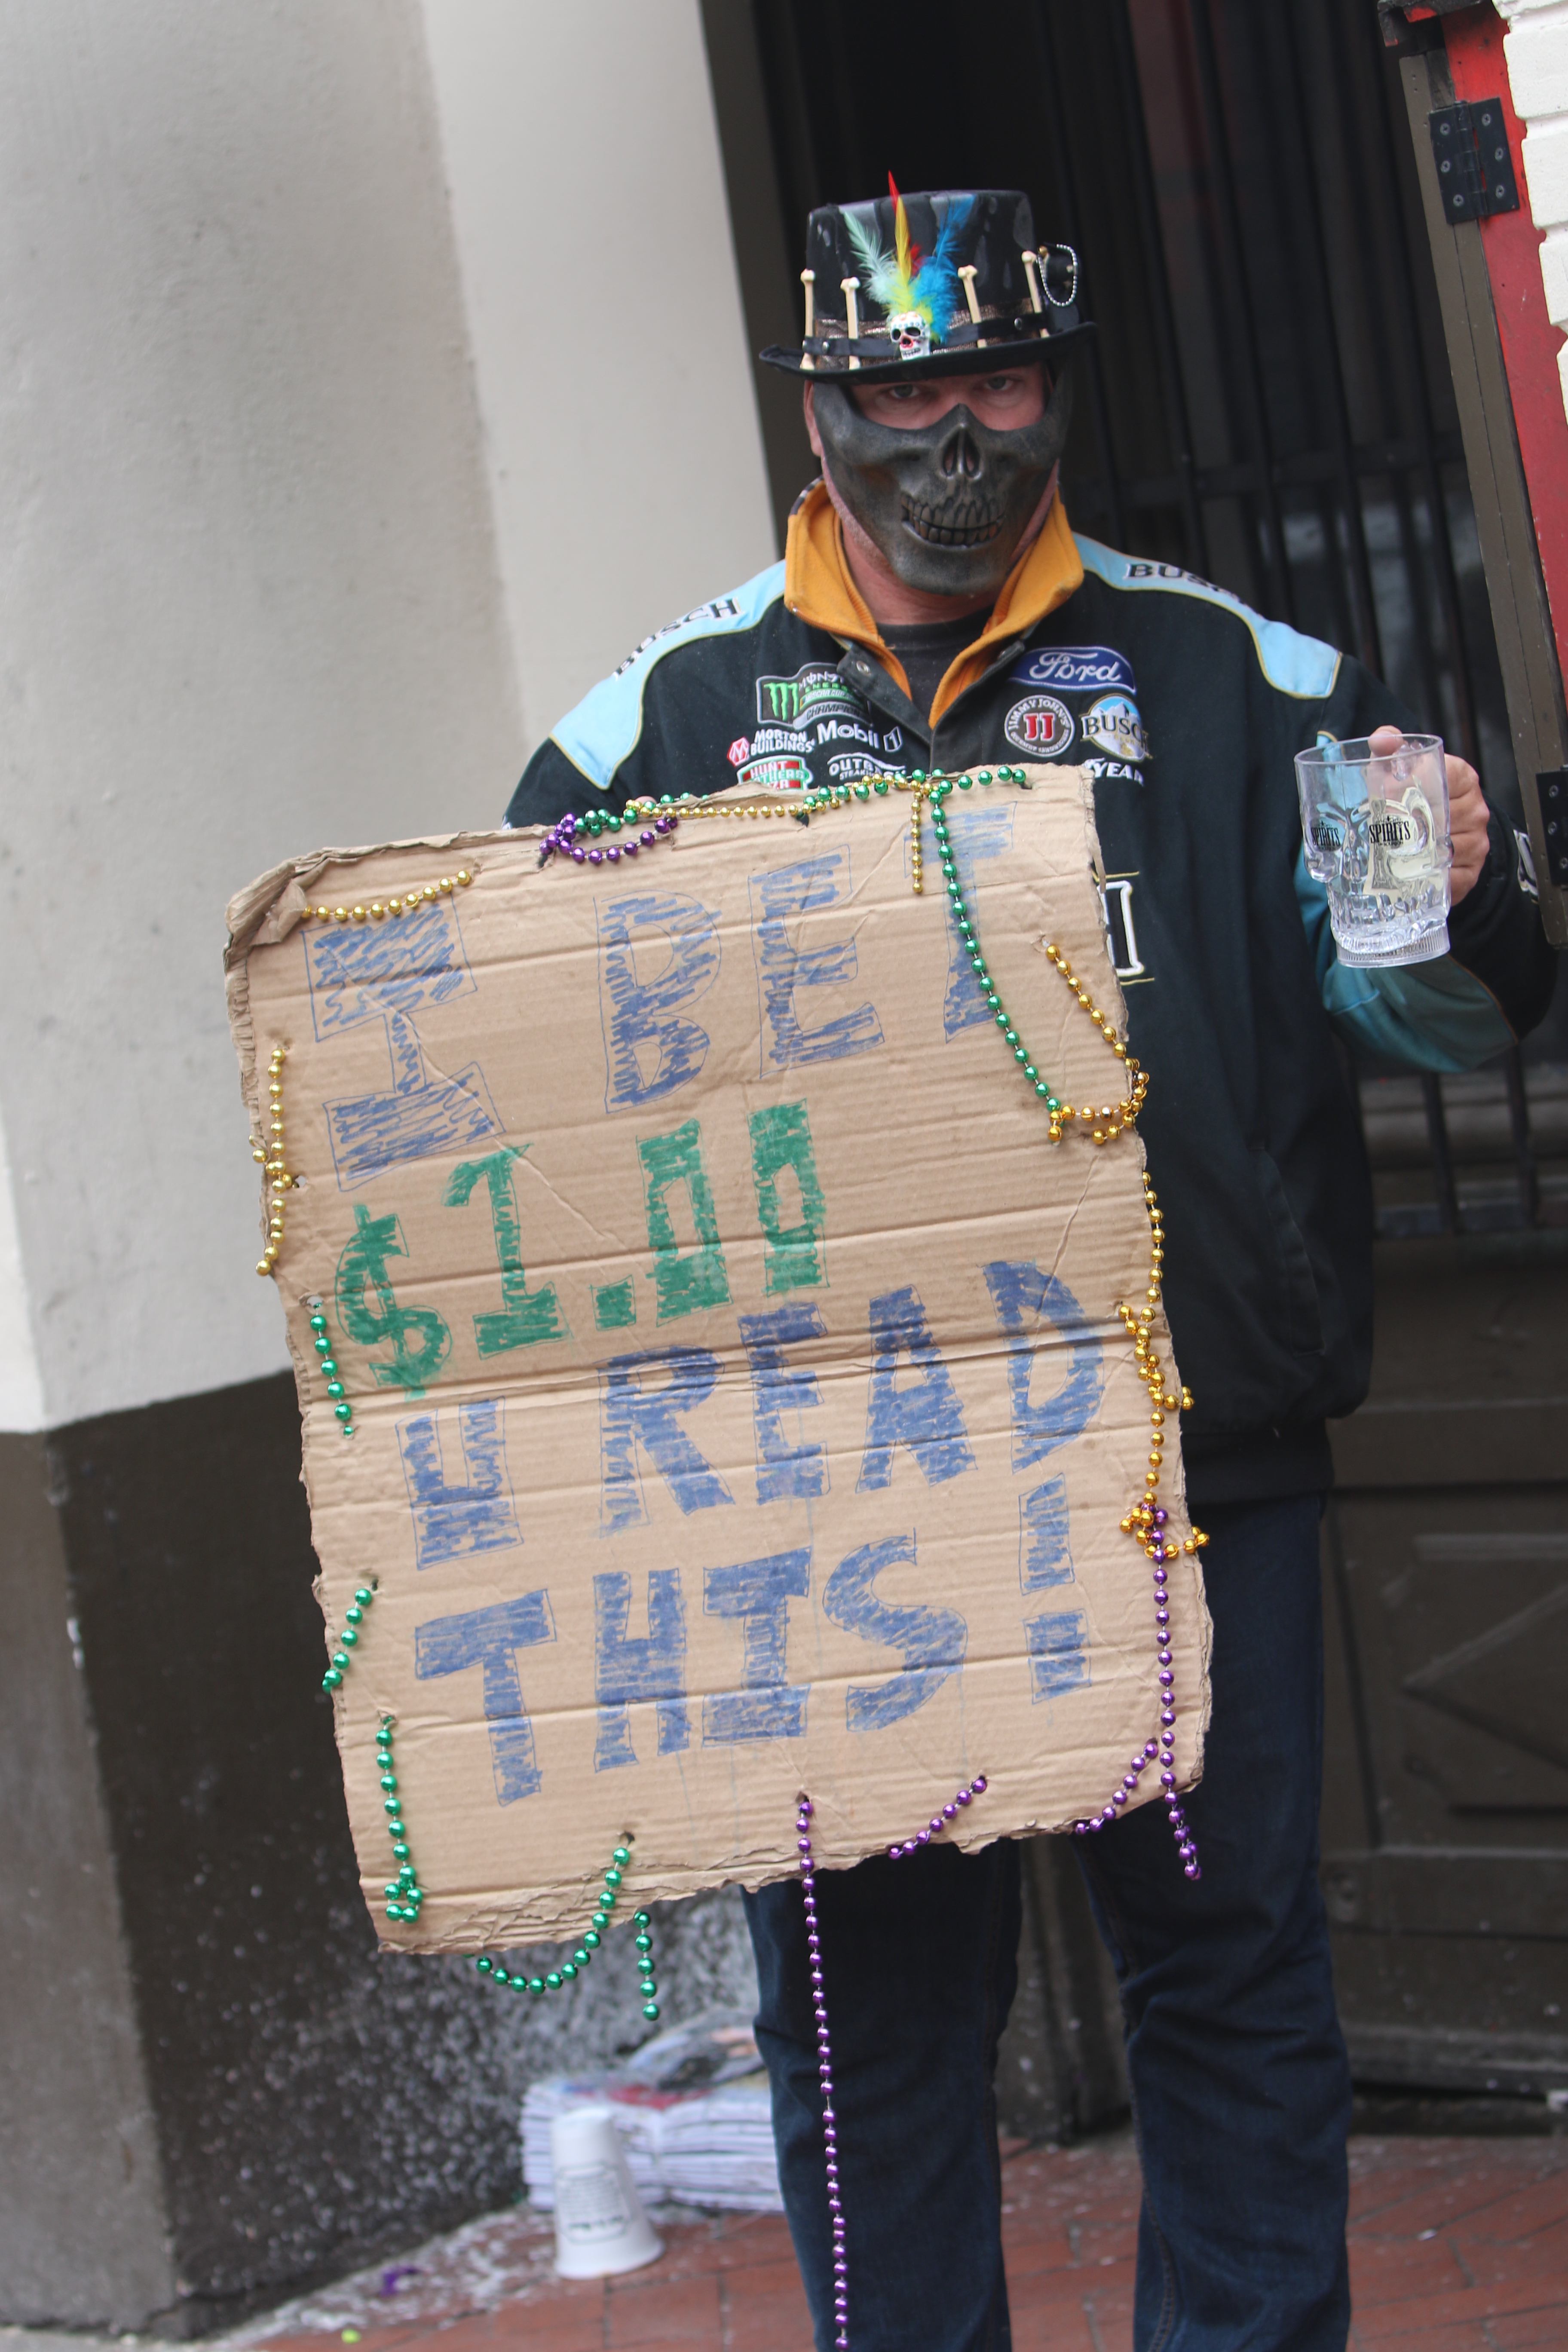 BUSCH
BUSCH
Ford
MONSTER
ENERGY
JIMMY JOHN'S
JJ
BUSCH
MORTON
BUILDINGS
Mobil 1
HUNT
BROTHERS
SPIRITS
SPIRITS
I BET
$1.00
U READ
THIS!